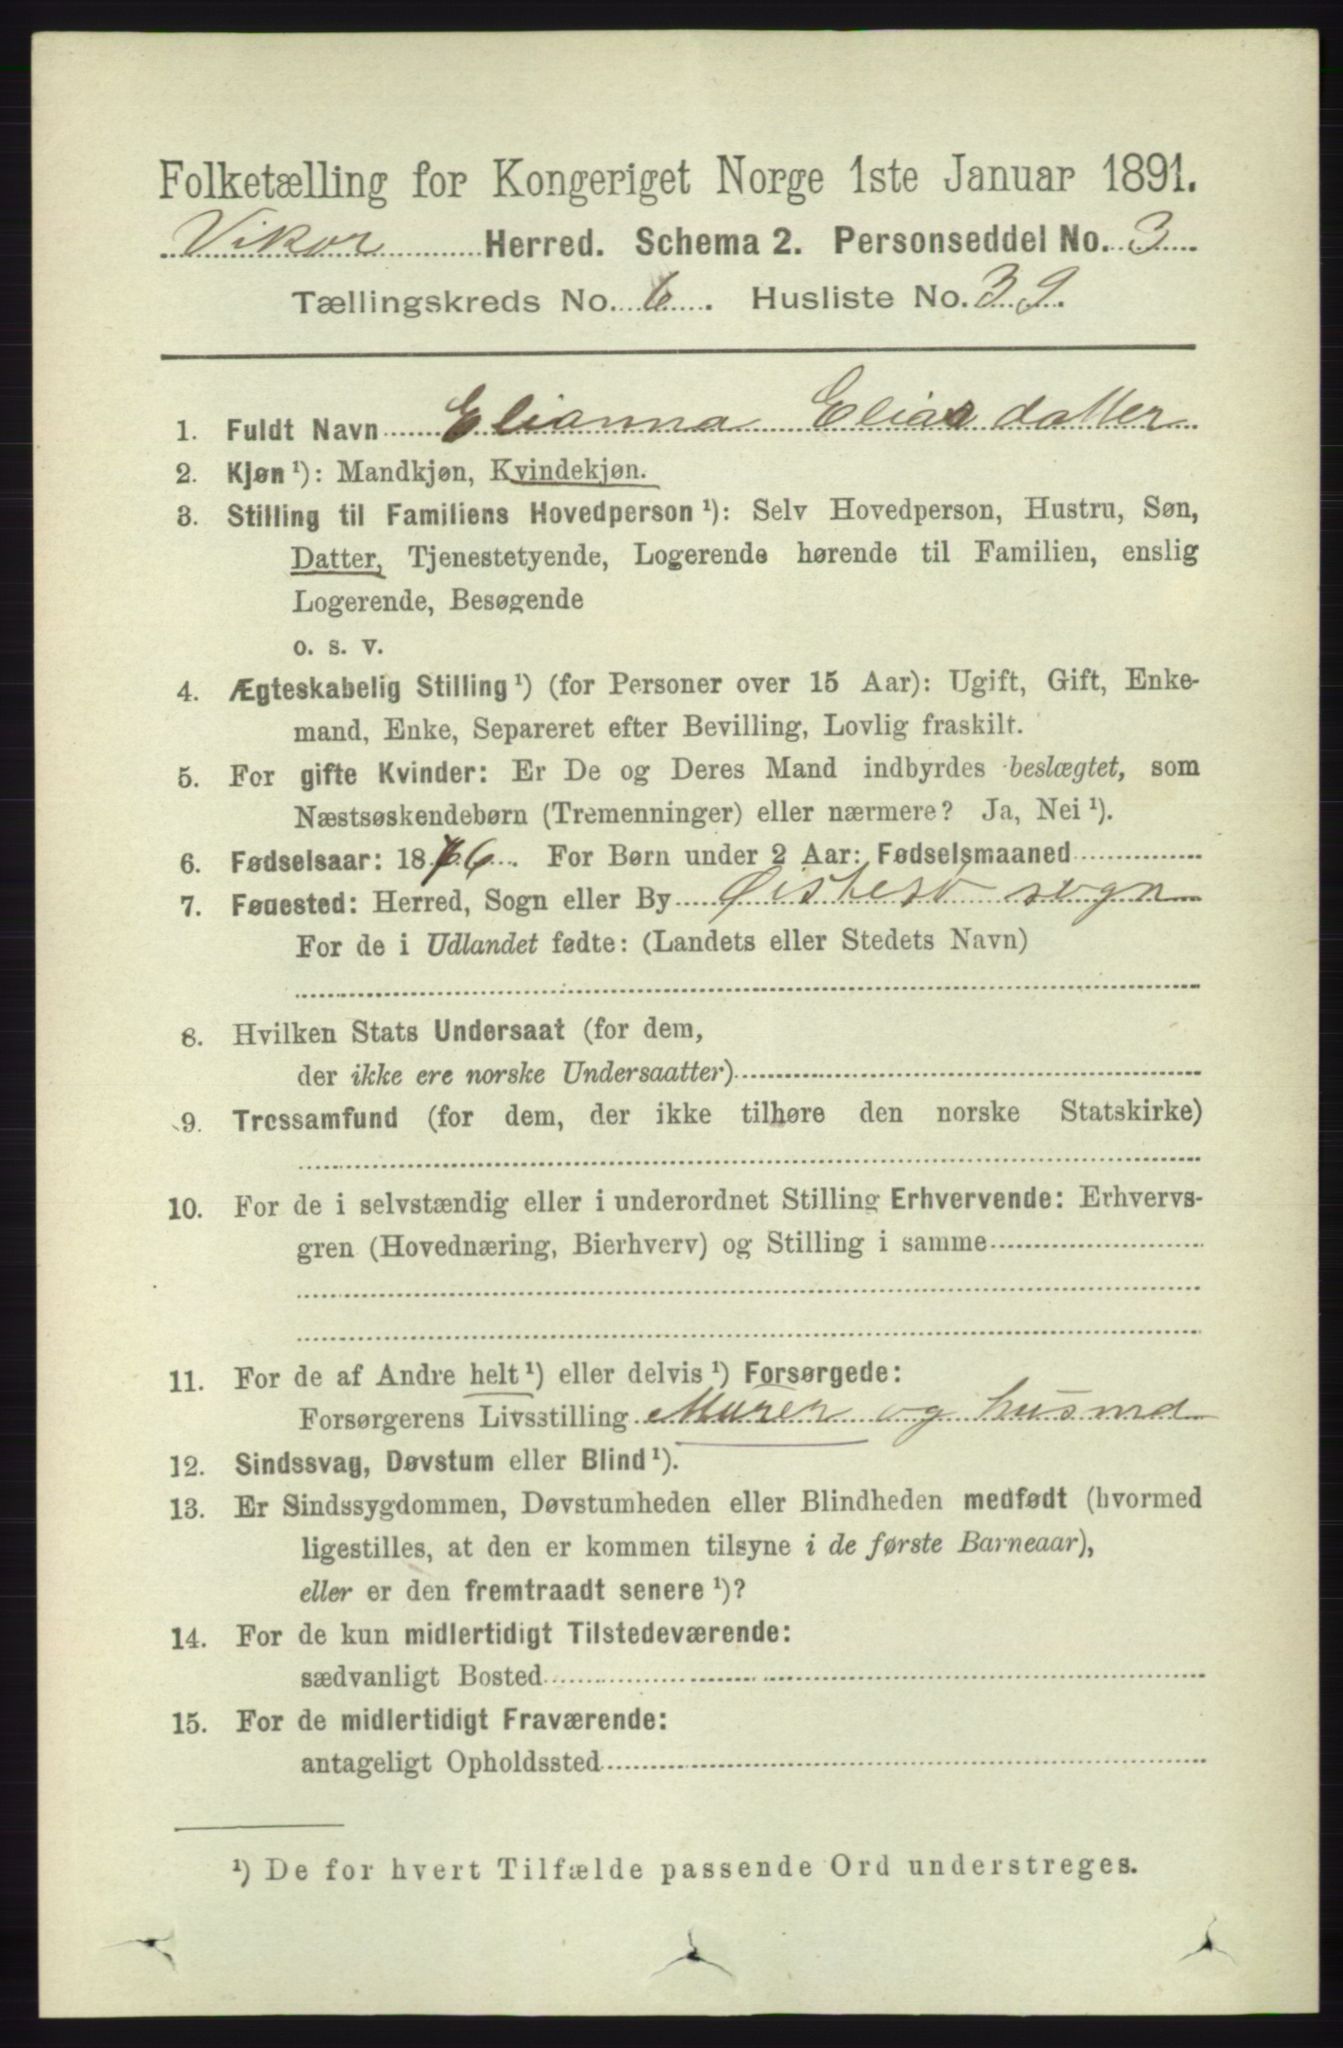 Folketælling for Kongeriget Norge 1ste Januar 1891.
Vikør Herred. Schema 2. Personseddel No. 3
Tællingskreds No. 6. Husliste No. 39.
1. Fuldt Navn Elianna Elias datter
2. Kjøn ¹): Mandkjøn, Kvindekjøn.
3. Stilling til Familiens Hovedperson ¹): Selv Hovedperson, Hustru, Søn,
Datter, Tjenestetyende, Logerende hørende til Familien, enslig
Logerende, Besøgende
o. s. v.
4. Ægteskabelig Stilling ¹) (for Personer over 15 Aar): Ugift, Gift, Enke-
mand, Enke, Separeret efter Bevilling, Lovlig fraskilt.
5. For gifte Kvinder: Er De og Deres Mand indbyrdes beslægtet, som
Næstsøskendebørn (Tremenninger) eller nærmere? Ja, Nei ¹).
6. Fødselsaar: 1876. For Børn under 2 Aar: Fødselsmaaned
7. Føuested: Herred, Sogn eller By Øistesø sogn
For de i Udlandet fødte: (Landets eller Stedets Navn)
8. Hvilken Stats Undersaat (for dem,
der ikke ere norske Undersaatter)
9. Trossamfund (for dem, der ikke tilhøre den norske Statskirke)
10. For de i selvstændig eller i underordnet Stilling Erhvervende: Erhvervs-
gren (Hovednæring, Bierhverv) og Stilling i samme
11. For de af Andre helt ¹) eller delvis ¹) Forsørgede:
Forsørgerens Livsstilling Murer og husmd
12. Sindssvag, Døvstum eller Blind ¹).
13. Er Sindssygdommen, Døvstumheden eller Blindheden medfødt (hvormed
ligestilles, at den er kommen tilsyne i de første Barneaar),
eller er den fremtraadt senere ¹)?
14. For de kun midlertidigt Tilstedeværende:
sædvanligt Bosted
15. For de midlertidigt Fraværende:
antageligt Opholdssted
¹) De for hvert Tilfælde passende Ord understreges.